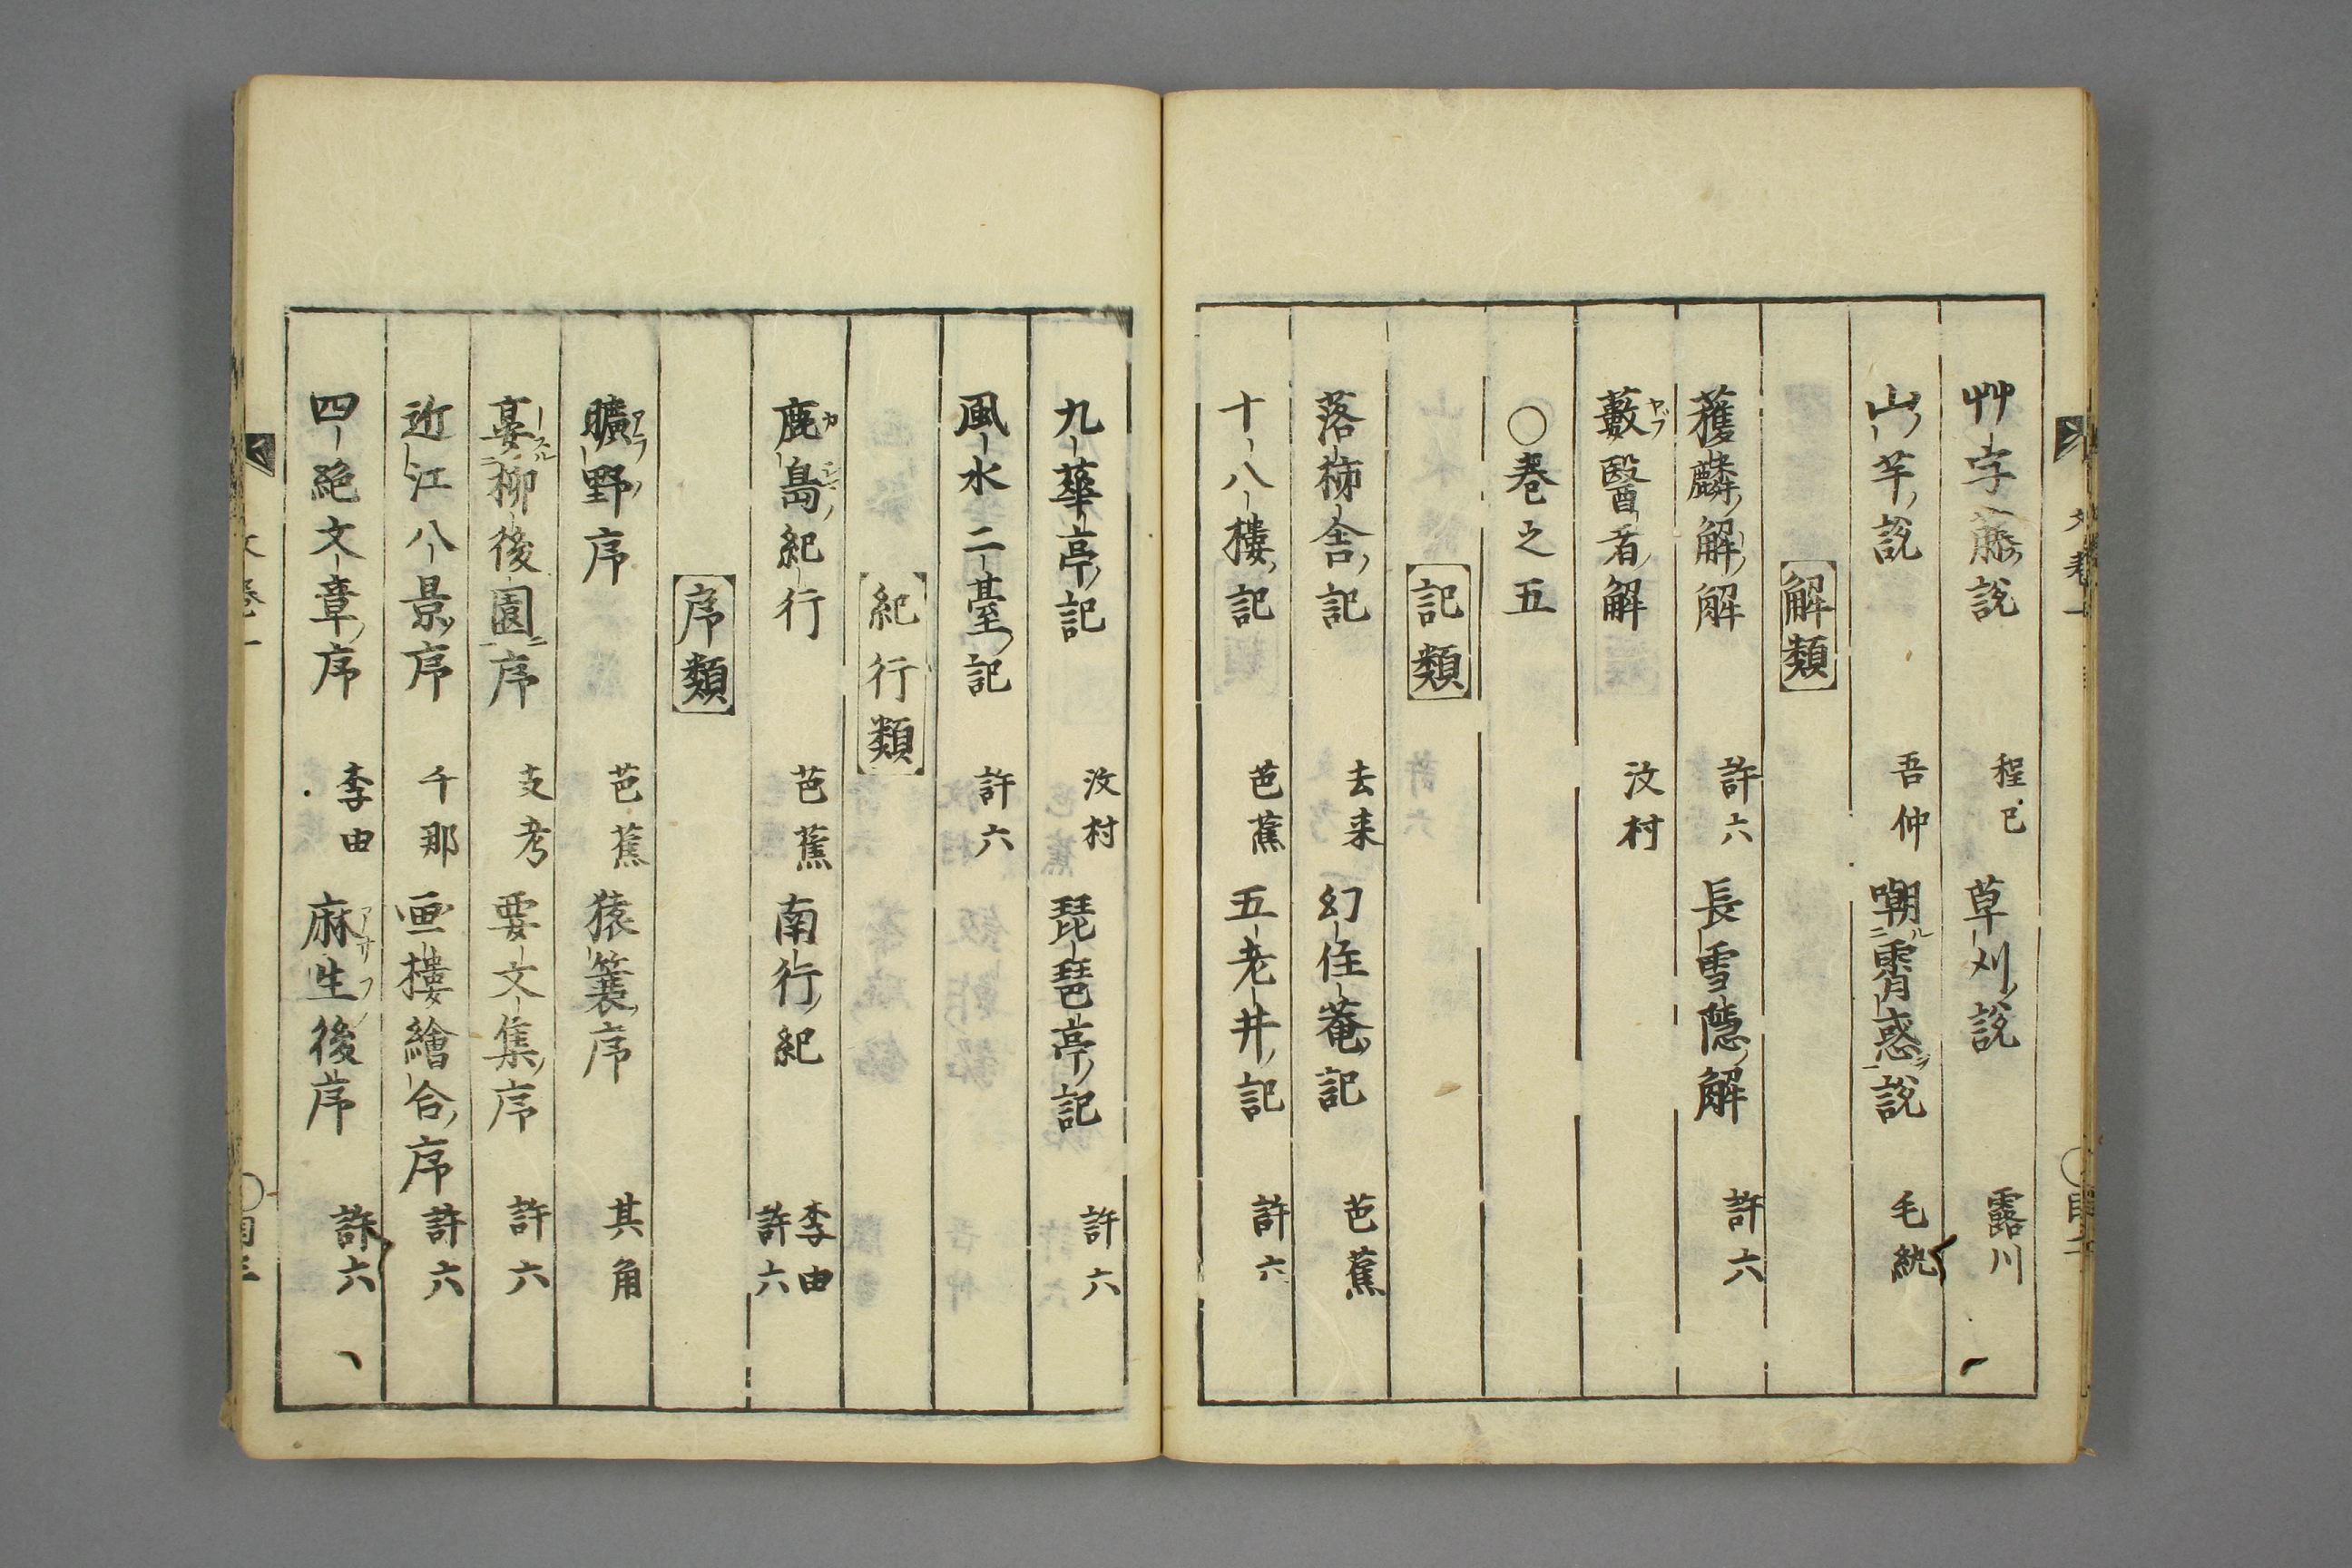 艸字藤ノ説 程已 草刈ノ説 露川
山ノ芋ノ説 吾仲 嘲ル霄惑ヲ説 毛紈
解類
獲麟ノ解ノ解 許六 長雪隠ノ解 許六
藪醫者ノ解 汶村
○巻之五
記類
落柿舎ノ記 去来 幻住菴ノ記 芭蕉
十八樓ノ記 芭蕉 五老井ノ記 許六
九華亭ノ記 汶村 琵琶亭ノ記 許六
風水二臺ノ記 許六
紀行類
鹿島ノ紀行 芭蕉 南行ノ紀 李由 許六
序類
曠野ノ序 芭蕉 猿簔ノ序 其角
宴スル柳後園ニ序 支考 要文集ノ序 許六
近江八景ノ序 千那 画樓繪合ノ序 許六
四絶文章ノ序 李由 麻生ノ後序 許六